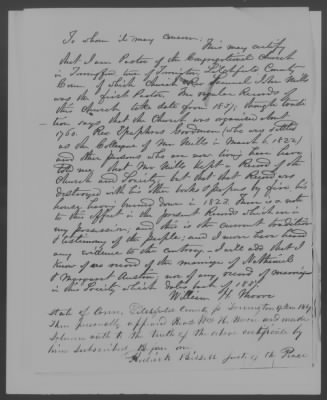 To whom it may concern: This may certify
that I am Pastor of the Congregational Church
in Torringford, town of Torrington, Litchfield County
Conn. of which Church Rev Samuel John Mills
was the first Pastor. The regular Records of
this Church take date from 1837; though tradi-
tion says that the Church was organised about
1760. Rev Epaphras Goodman (who was settled
as the Colleague of Mr Mills in March 1822)
and other persons who are now living have
told me that Mr Mills kept a Record of the
Church and Society but that that Record was
destroyed with his other books & papers by fire, his
house having burned down in 1823. There is a note
to this effect in the present Records which are in
my possession, and this is the current tradition
& testimony of the people, and I never have heard
any evidence to the contrary. I will add that I
know of no record of the marriage of Nathaniel
& Margaret Austin, nor of any record of marriages
in this Society which dates back of 1837.
William H. Moore
State of Conn. Litchfield County ss Torrington
Then personally appeared Rev Wm H. Moore and made
Solemn oath to the truth of the above certificate by
him subscribed Before me
Bissell Justice of the Peace